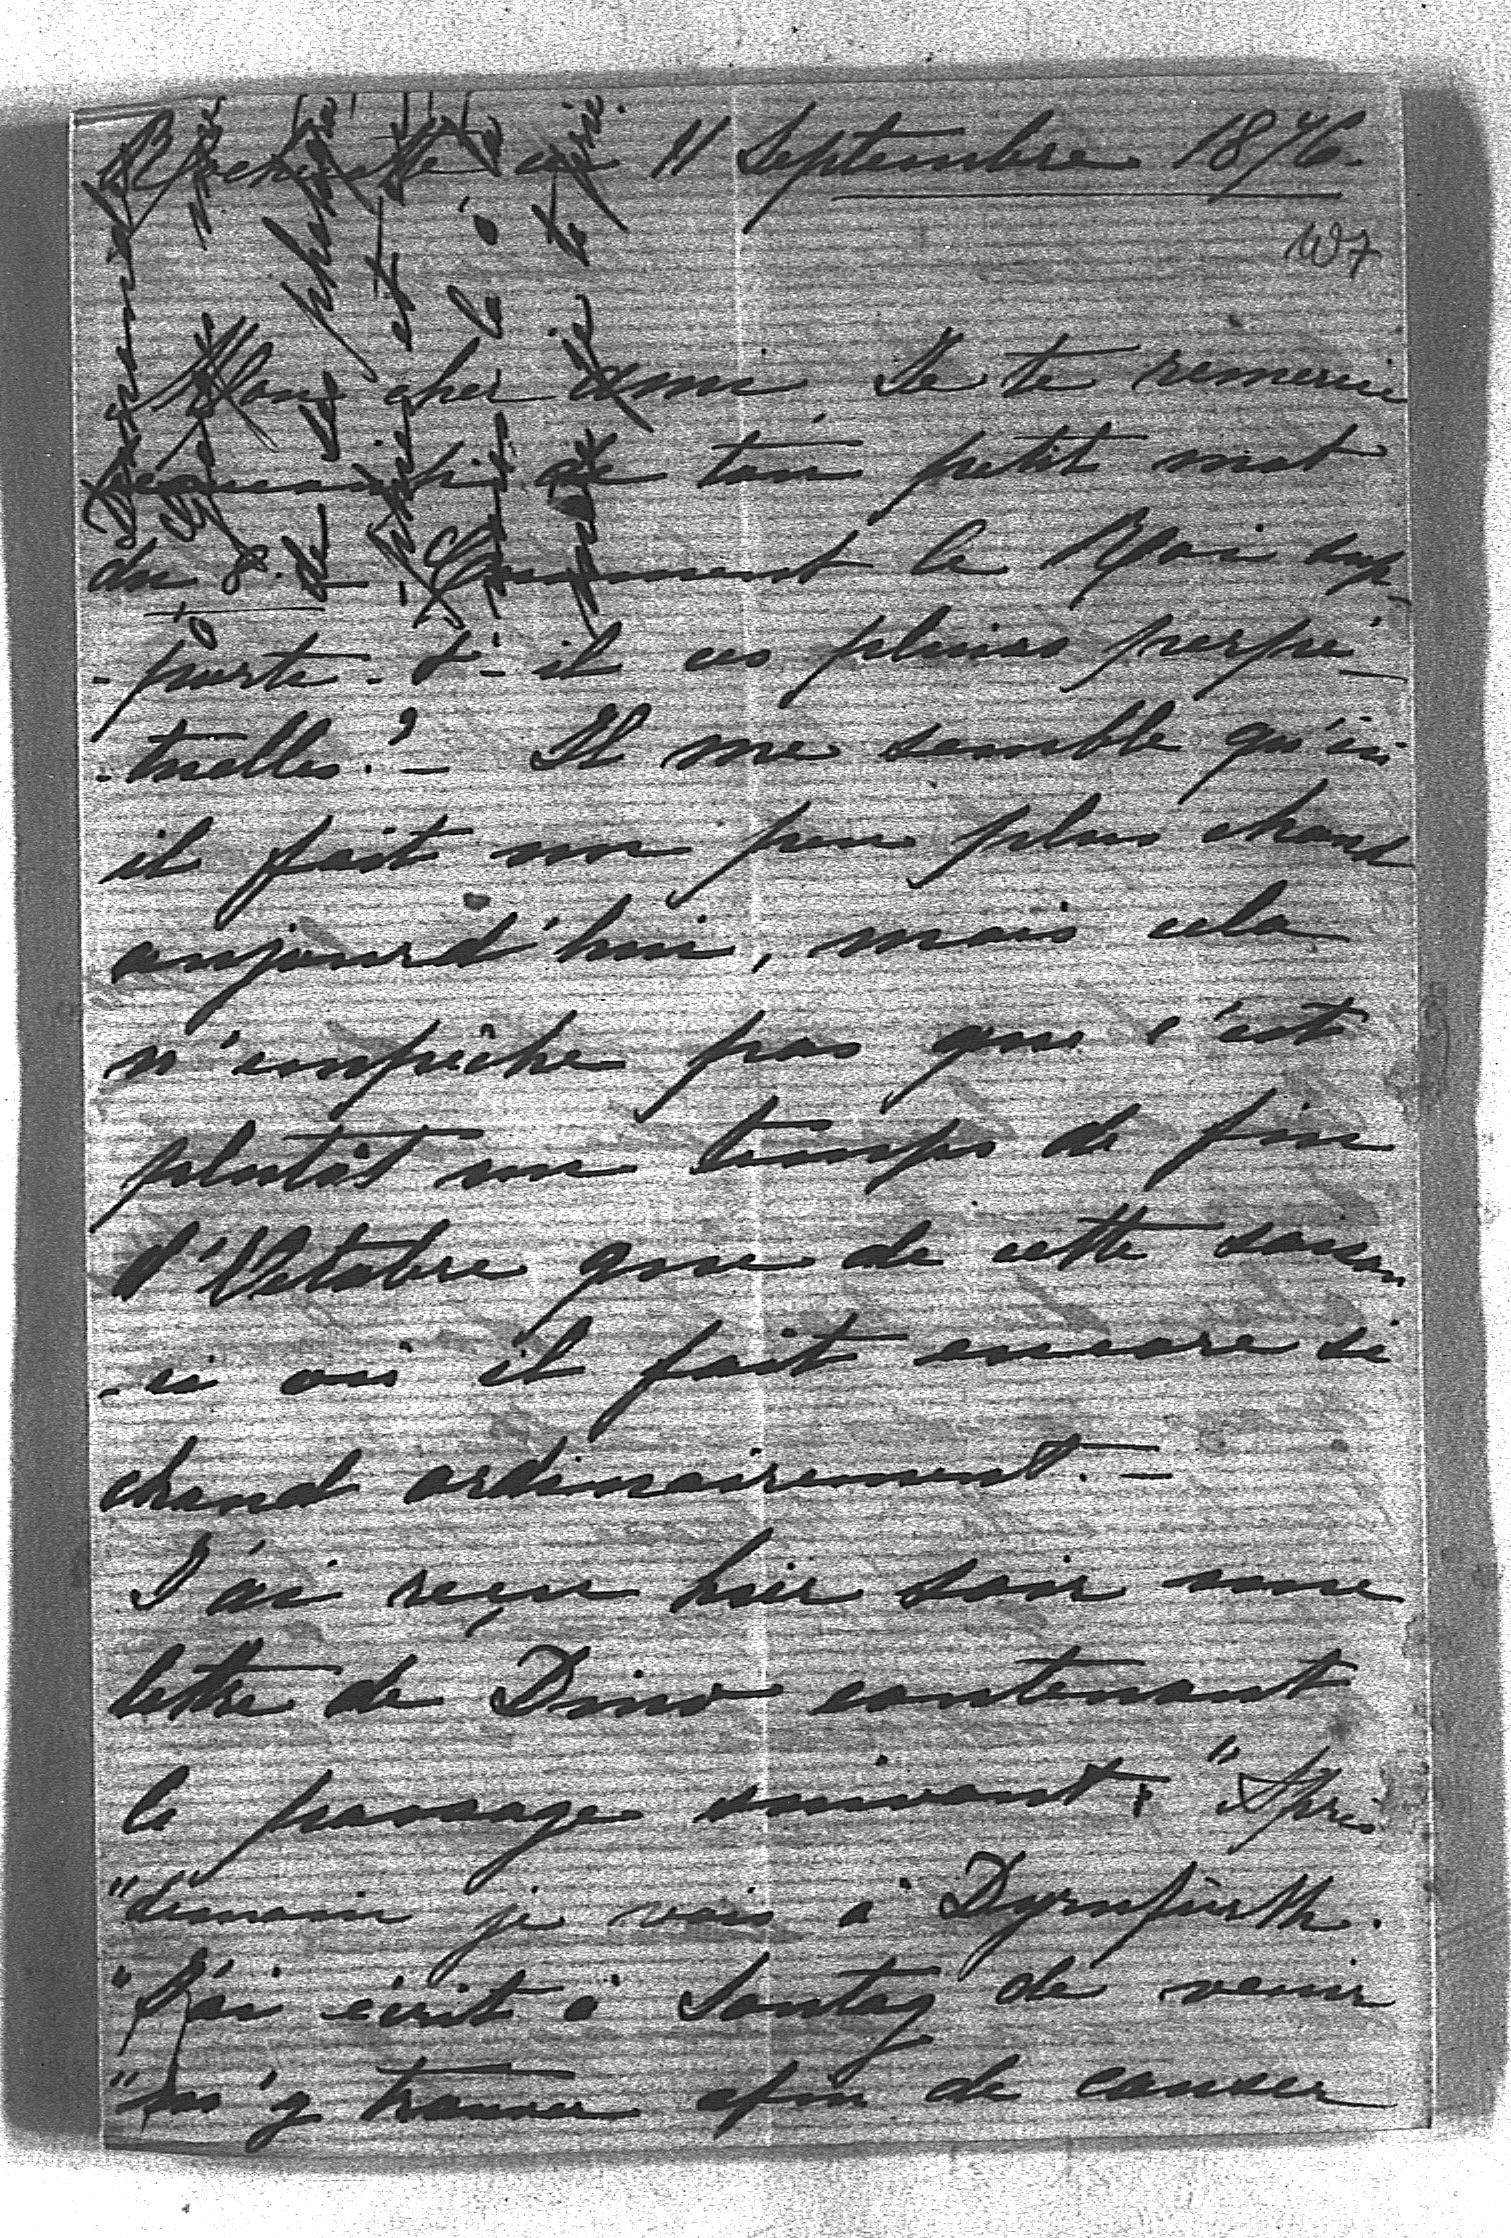 Rochecotte ce 11 Septembre 1876.
W7
Mon cher ami, Je te remercie
beaucoup de ton petit mot
du 8. – Comment le Roi sup-
-porte-t-il ces pluies perpé-
-tuelles? – Il me semble qu'ici
il fait un peu plus chaud
aujourd'hui, mais cela
n'empêche pas que c'est
plutôt un temps de fin
d'Octobre que de cette saison
-ci où il fait encore si
chaud ordinairement. –
J'ai reçu hier soir une
lettre de Dino contenant
le passage suivant: "Après
"demain je vais à Dyrnfurth.
"J'ai écrit à Sontag de venir
"m'y trouver afin de causer